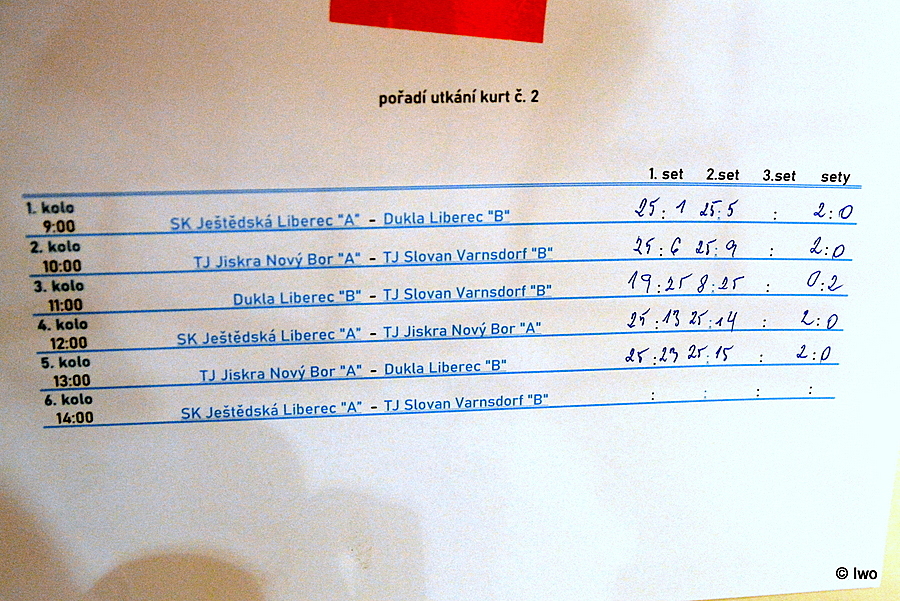 pořadí utkání kurt č. 2
1. set 2.set 3.set sety
1. kolo
9:00 SK Ještědská Liberec "A" - Dukla Liberec "B" 25:1 25:5 : 2:0
2. kolo
10:00 TJ Jiskra Nový Bor "A" - TJ Slovan Varnsdorf "B" 25:6 25:9 : 2:0
3. kolo
11:00 Dukla Liberec "B" - TJ Slovan Varnsdorf "B" 19:25 8:25 : 0:2
4. kolo
12:00 SK Ještědská Liberec "A" - TJ Jiskra Nový Bor "A" 25:13 25:14 : 2:0
5. kolo
13:00 TJ Jiskra Nový Bor "A" - Dukla Liberec "B" 25:23 25:15 : 2:0
6. kolo
14:00 SK Ještědská Liberec "A" - TJ Slovan Varnsdorf "B" : : : :
© Iwo